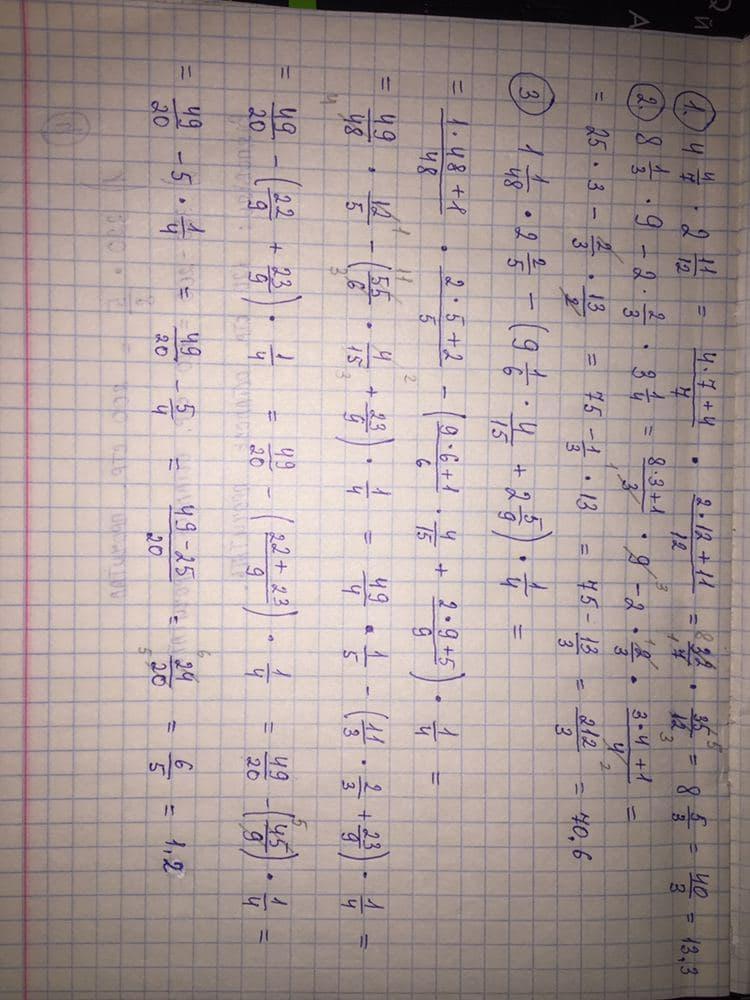 1. 4 4/7 · 2 11/12 = (4·7+4)/7 · (2·12+11)/12 = 32/7 · 35/12 = 8 · 5/3 = 40/3 = 13,3
2. 8 1/3 · 9 - 2 · 2/3 · 3 1/4 = (8·3+1)/3 · 9 - 2 · 2/3 · (3·4+1)/4 =
= 25 · 3 - 2/3 · 13/2 = 75 - 1/3 · 13 = 75 - 13/3 = 212/3 = 70,6
3 1 1/48 · 2 2/5 - (9 1/6 · 4/15 + 2 5/9) · 1/4 =
= (1·48+1)/48 · (2·5+2)/5 - ((9·6+1)/6 · 4/15 + (2·9+5)/9) · 1/4 =
= 49/48 · 12/5 - (55/6 · 4/15 + 23/9) · 1/4 = 49/4 · 1/5 - (11/3 · 2/3 + 23/9) · 1/4 =
= 49/20 - (22/9 + 23/9) · 1/4 = 49/20 - ((22+23)/9) · 1/4 = 49/20 - (45/9) · 1/4 =
= 49/20 - 5 · 1/4 = 49/20 - 5/4 = (49-25)/20 = 24/20 = 6/5 = 1,2